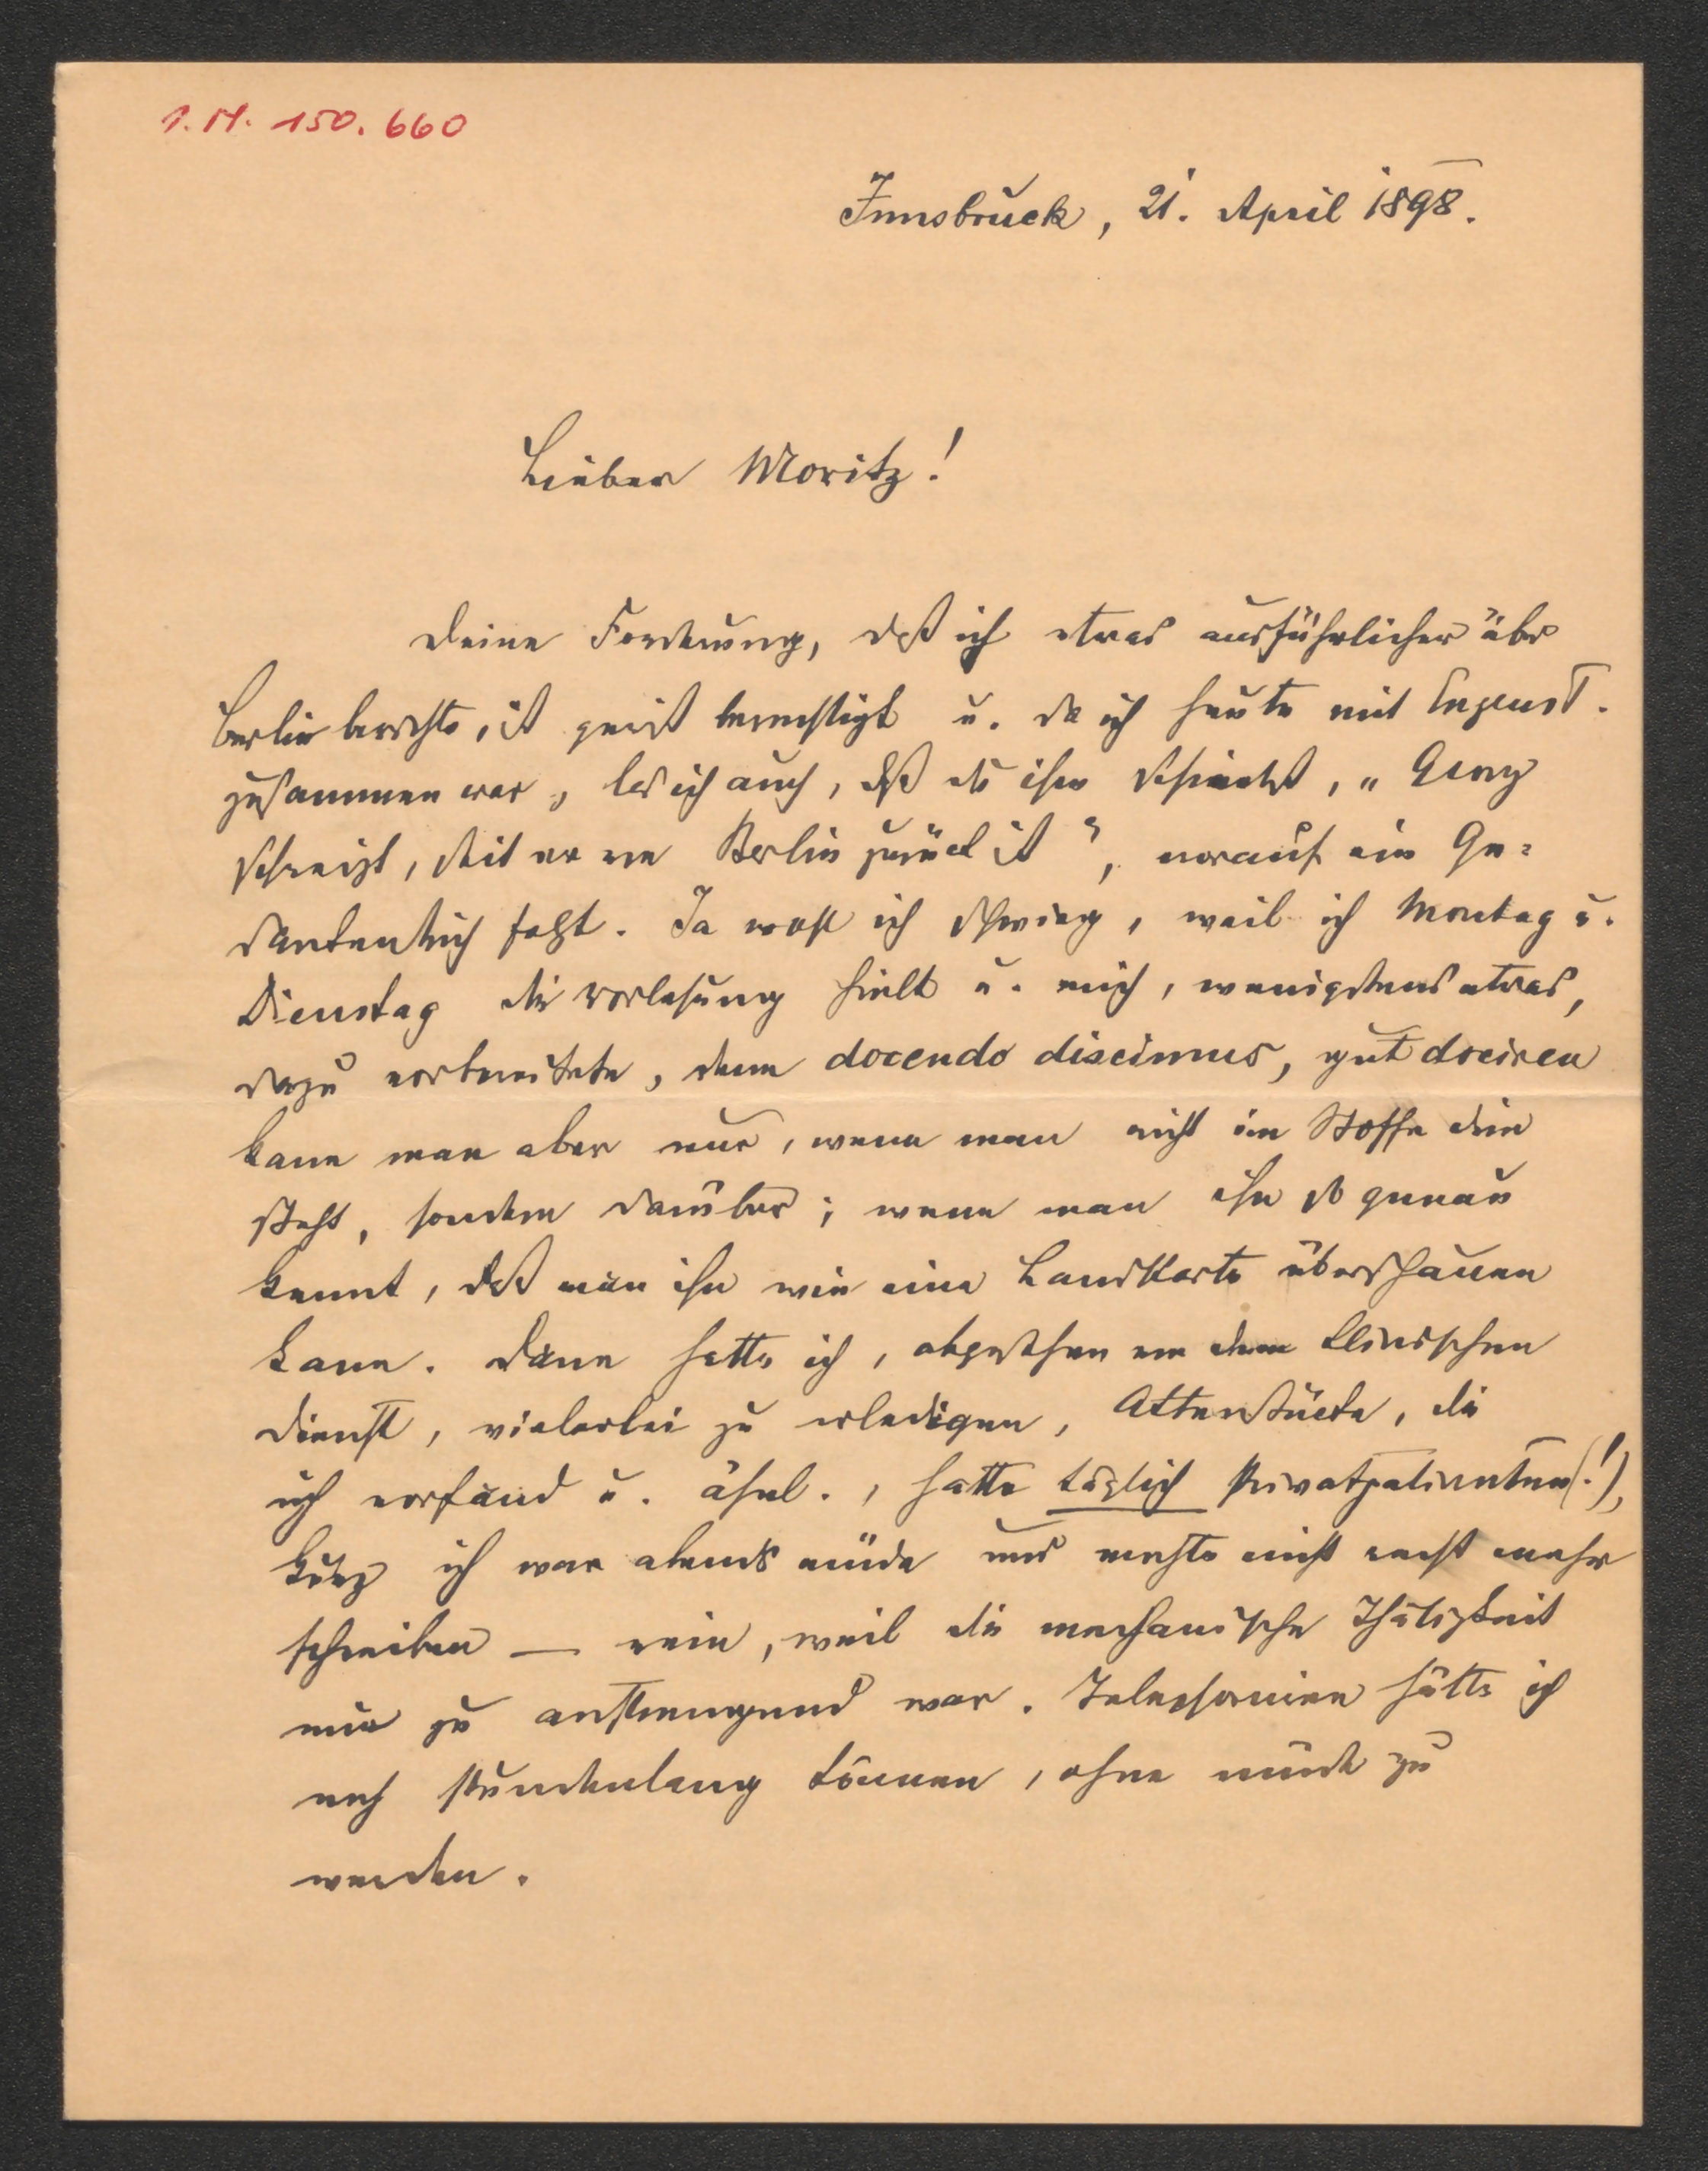 I.N. 150.660
Innsbruck, 21. April 1898.
Lieber Moritz!
Deine Forderung, daß ich etwas ausführlicher über
Berlin berichte, ist gewiß berechtigt u. da ich heute mit
zusammen war, las ich auch, daß du ihm schriebst, „Georg
schweigt, seit er von Berlin zurück ist“, worauf ein Ge=
dankenstrich folgt. Ja wohl ich schwieg, weil ich Montag u.
Dienstag die Vorlesung hielt u. mich, wenigstens etwas,
dazu vorbereitete, denn docendo discimus, gut dociren
kann man aber nur, wenn man nicht im Stoffe drin
steht, sondern darüber; wenn man ihn so genau
kennt, daß man ihn wie eine Landkarte überschauen
kann. Dann hatte ich, abgesehen von dem klinischen
Dienst, vielerlei zu erledigen, Aktenstücke, die
ich vorfand u. ähnl., hatte täglich Privatpatienten (!),
kurz ich war abends müde und mochte nicht recht mehr
schreiben — rein, weil die mechanische Thätigkeit
mir zu anstrengend war. Telephonieren hätte ich
noch stundenlang können, ohne müde zu
werden.